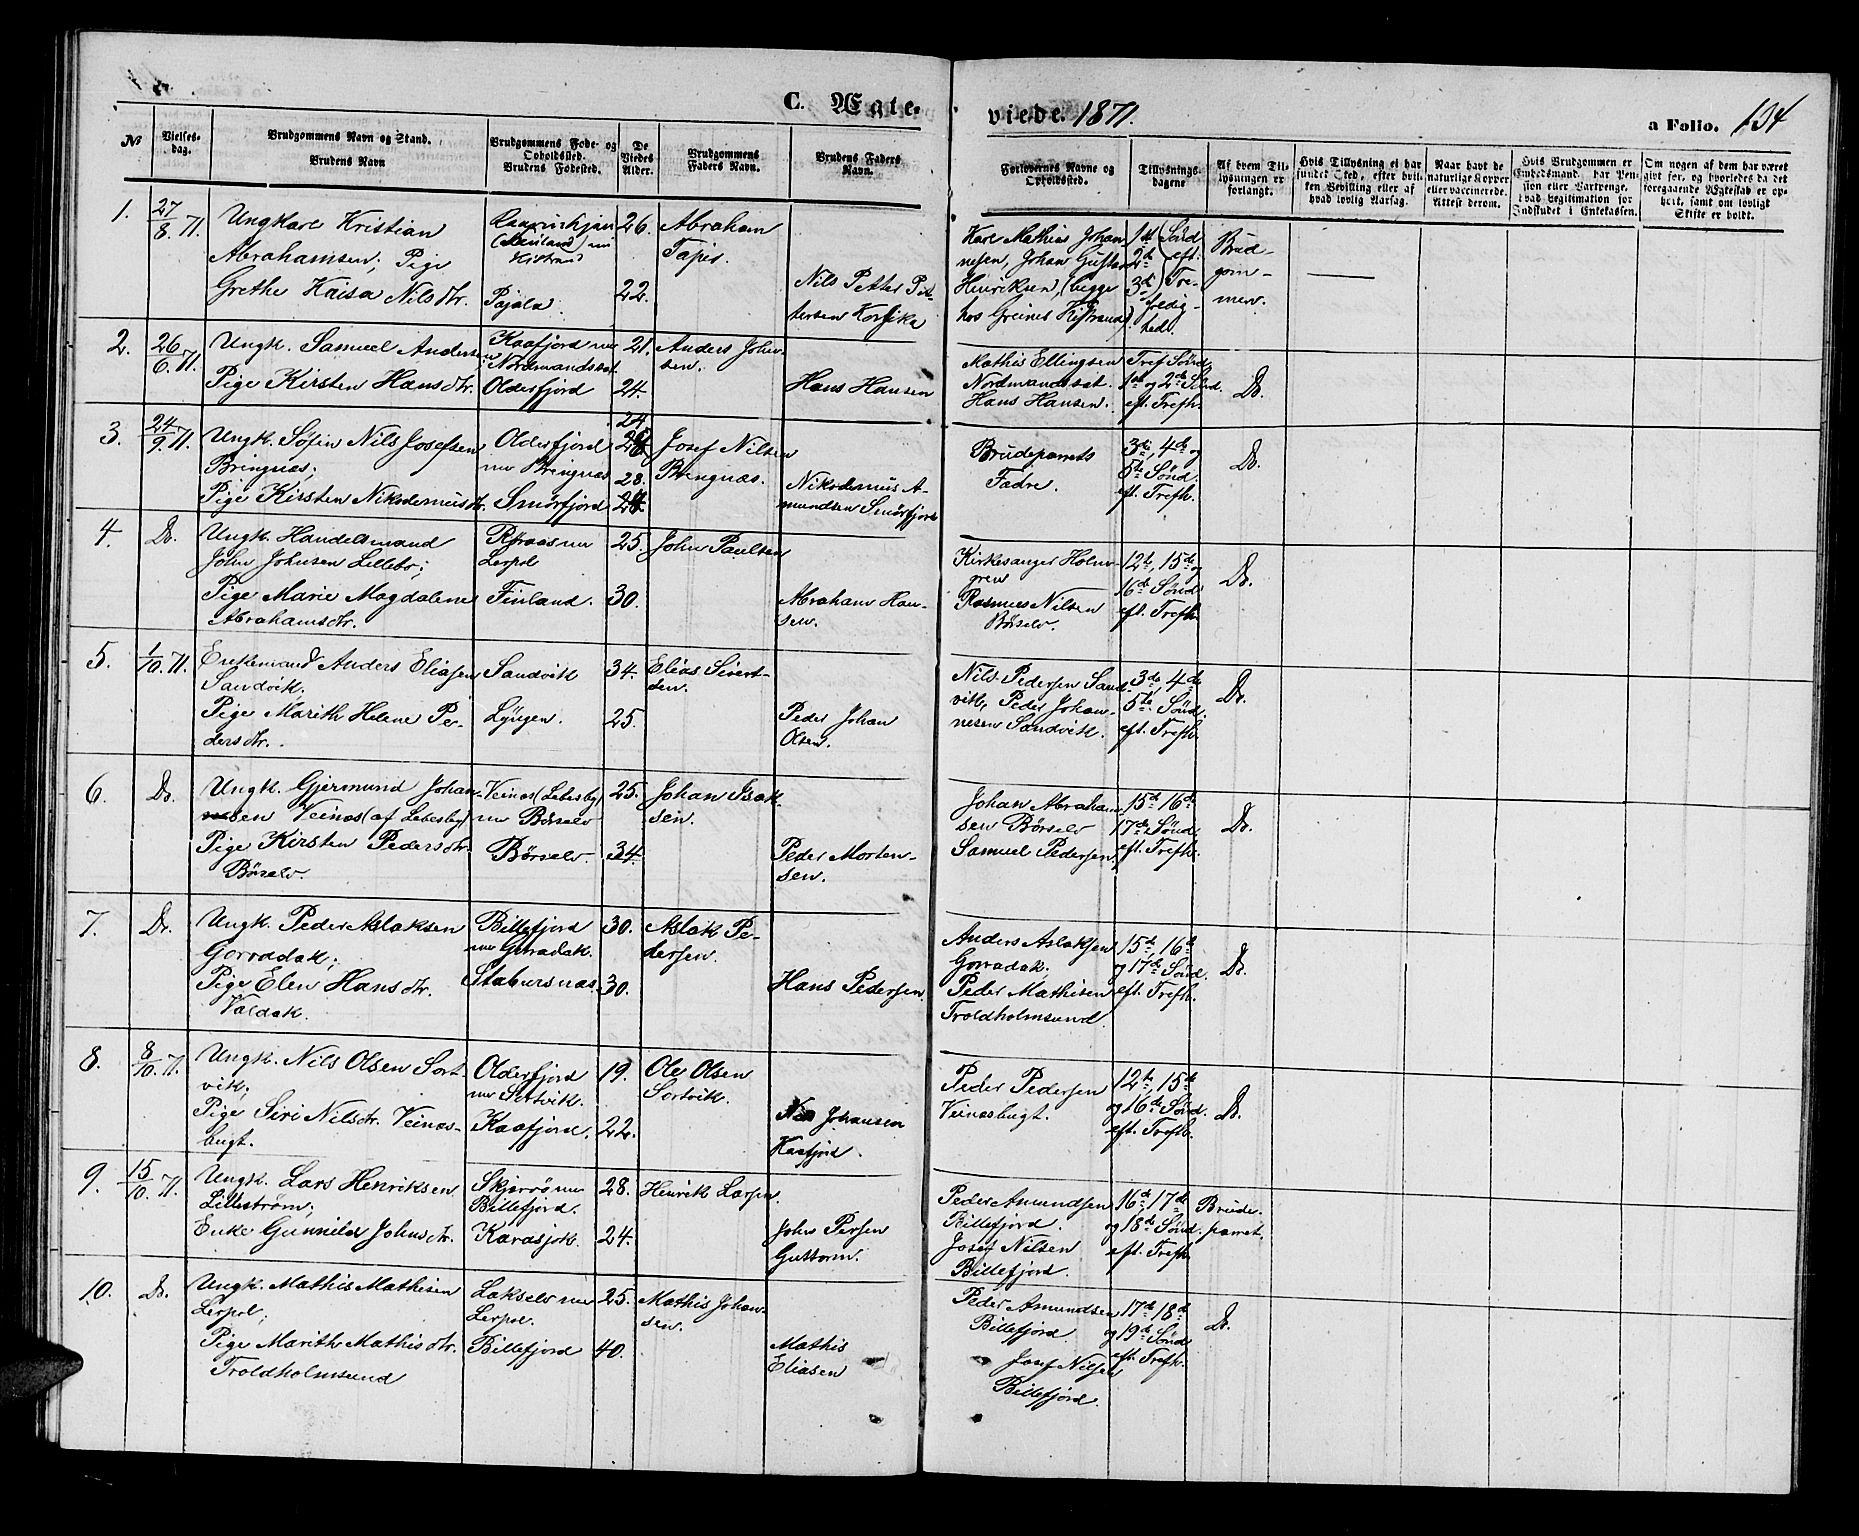 C. Ægte- viede. 1871.
a Folio. 134
No
Vielses-
dag.
Brudgommens Navn og Stand.
Brudens Navn
Brudgommens Føde- og
Opholdssted.
Brudens Fødested.
De
Viedes
Alder.
Brudgommens
Faders Navn.
Brudens Faders
Navn.
Forlovernes Navne og
Opholdssted.
Tillysnings-
dagene
Af hvem Til-
lysningen er
forlangt.
Hvis Tillysning ei har
fundet Sted, efter hvil-
ken Bevilling eller af
hvad lovlig Aarsag.
Naar havt de
naturlige Kopper
eller vaccinerede.
Attest derom.
Hvis Brudgommen er
Enkemand, har Pen-
sion eller Vartpenge.
hvad Legitimation for
Indskudet i Enkekassen.
Om nogen af dem har været
gift før, og hvorledes da det
foregaaende Ægteskab er op-
hørt, samt om lovligt
Skifte er holdt.
1. 27/8 71. Ungkarl Kristian
Abrahamsen; Pige
Grethe Kaisa Nilsdtr.
Kistrand
Pajala.
26.
22.
Abraham
Tapio.
Nils Petter Pet-
tersen Korsika
Karl Mathis Johan-
nesen, Johan Gustav
Henriksen, (begge
hos Greines Kistrand)
1st 2de 3de Sønd. eft. Tre-
foldig-
hed.
Brud-
gom-
men.
2. 26/6 71. Ungk. Samuel Andersen
Pige Kirsten Hansdtr.
Kaafjord nu
Nordmandsset
Olderfjord
21.
24.
Anders John-
sen.
Hans Hansen
Mathis Ellingsen
Nordmandsset.
Hans Hansen.
Tref. Sønd.
1ste og 2de Sønd.
eft. Trefh.
Do.
3. 24/9 71. Ungk. Søfin Nils Josefsen
Bringnæs;
Pige Kirsten Nikodemusdtr.
Olderfjord
nu Bringnæs
Smørfjord
24
28.
Josef Nilsen
Bringnæs.
Nikodemus A-
mundsen Smørfjord
Brudeparrets
Fædre.
3de, 4de og
5te Sønd.
eft. Trefh.
Do.
4. Do. Ungk. Handelsmand
John Johnsen Lillebo;
Pige Marie Magdalene
Abrahamsdtr.
Røraas nu
Lerpol
Finland.
25.
30.
John Paulsen
Abraham Han-
sen.
Kirkesanger Holm-
gren
Rasmus Nilsen
Børselv.
12te, 15de og
16de Sønd.
eft. Trefh.
Do.
5. 1/10 71. Enkemand Anders Eliasen
Sandvik;
Pige Marith Helene Pe-
dersdtr.
Sandvik
Lyngen.
34.
25.
Elias Sivert-
sen.
Peder Johan
Olsen.
Nils Pedersen Sand-
vik, Peder Johan-
nesen Sandvik.
3de, 4de
5te Sønd.
eft. Trefh.
Do.
6. Do. Ungk. Gjermund Johan-
sen Veinæs (af Lebesby)
Pige Kirsten Pedersdtr.
Børselv.
Veinæs (Lebesby)
nu Børselv
Børselv.
25.
34.
Johan Isak-
sen.
Peder Morten-
sen.
Johan Abraham-
sen Børselv
Samuel Pedersen
15de 16de
17de Sønd.
eft. Trefh.
Do.
7. Do. Ungk. Peder Aslaksen
Gorradak;
Pige Elen Hansdtr.
Valdak.
Billefjord
nu Gorradak.
Stabursnæs.
30.
30.
Aslak Pe-
dersen.
Hans Pedersen
Anders Aslaksen
Gorradak;
Peder Mathisen
Troldholmsund.
15de, 16de
og 17de Sønd.
eft. Trefh.
Do.
8. 8/10 71. Ungk. Nils Olsen Sort-
vik;
Pige Siri Nilsdtr. Veinæs-
bugt.
Olderfjord
nu Sortvik.
Kaafjord.
19.
22.
Ole Olsen
Sortvik.
Johansen
Kaafjord.
Peder Pedersen
Veinæsbugt.
12te 15de
og 16de Sønd.
eft. Trefh.
Do.
9. 15/10 71. Ungk. Lars Henriksen
Lillestrøm;
Enke Gunnild Johnsdtr.
Skjerrø nu
Billefjord.
Karasjok.
28.
24.
Henrik Larsen.
John Persen
Guttorm.
Peder Amundsen
Billefjord.
Josef Nilsen
Billefjord.
16de 17de
og 18de Sønd.
eft. Trefh
Brude-
parret.
10. Do. Ungk. Mathis Mathisen
Lerpol;
Pige Marith Mathisdtr.
Troldholmsund
Lakselv nu
Lerpol.
Billefjord
25.
40.
Mathis Johan-
sen.
Mathis
Eliasen
Peder Amundsen
Billefjord.
Josef Nilsen
Billefjord.
17de 18de
og 19de Sønd.
eft. Trefh.
Do.